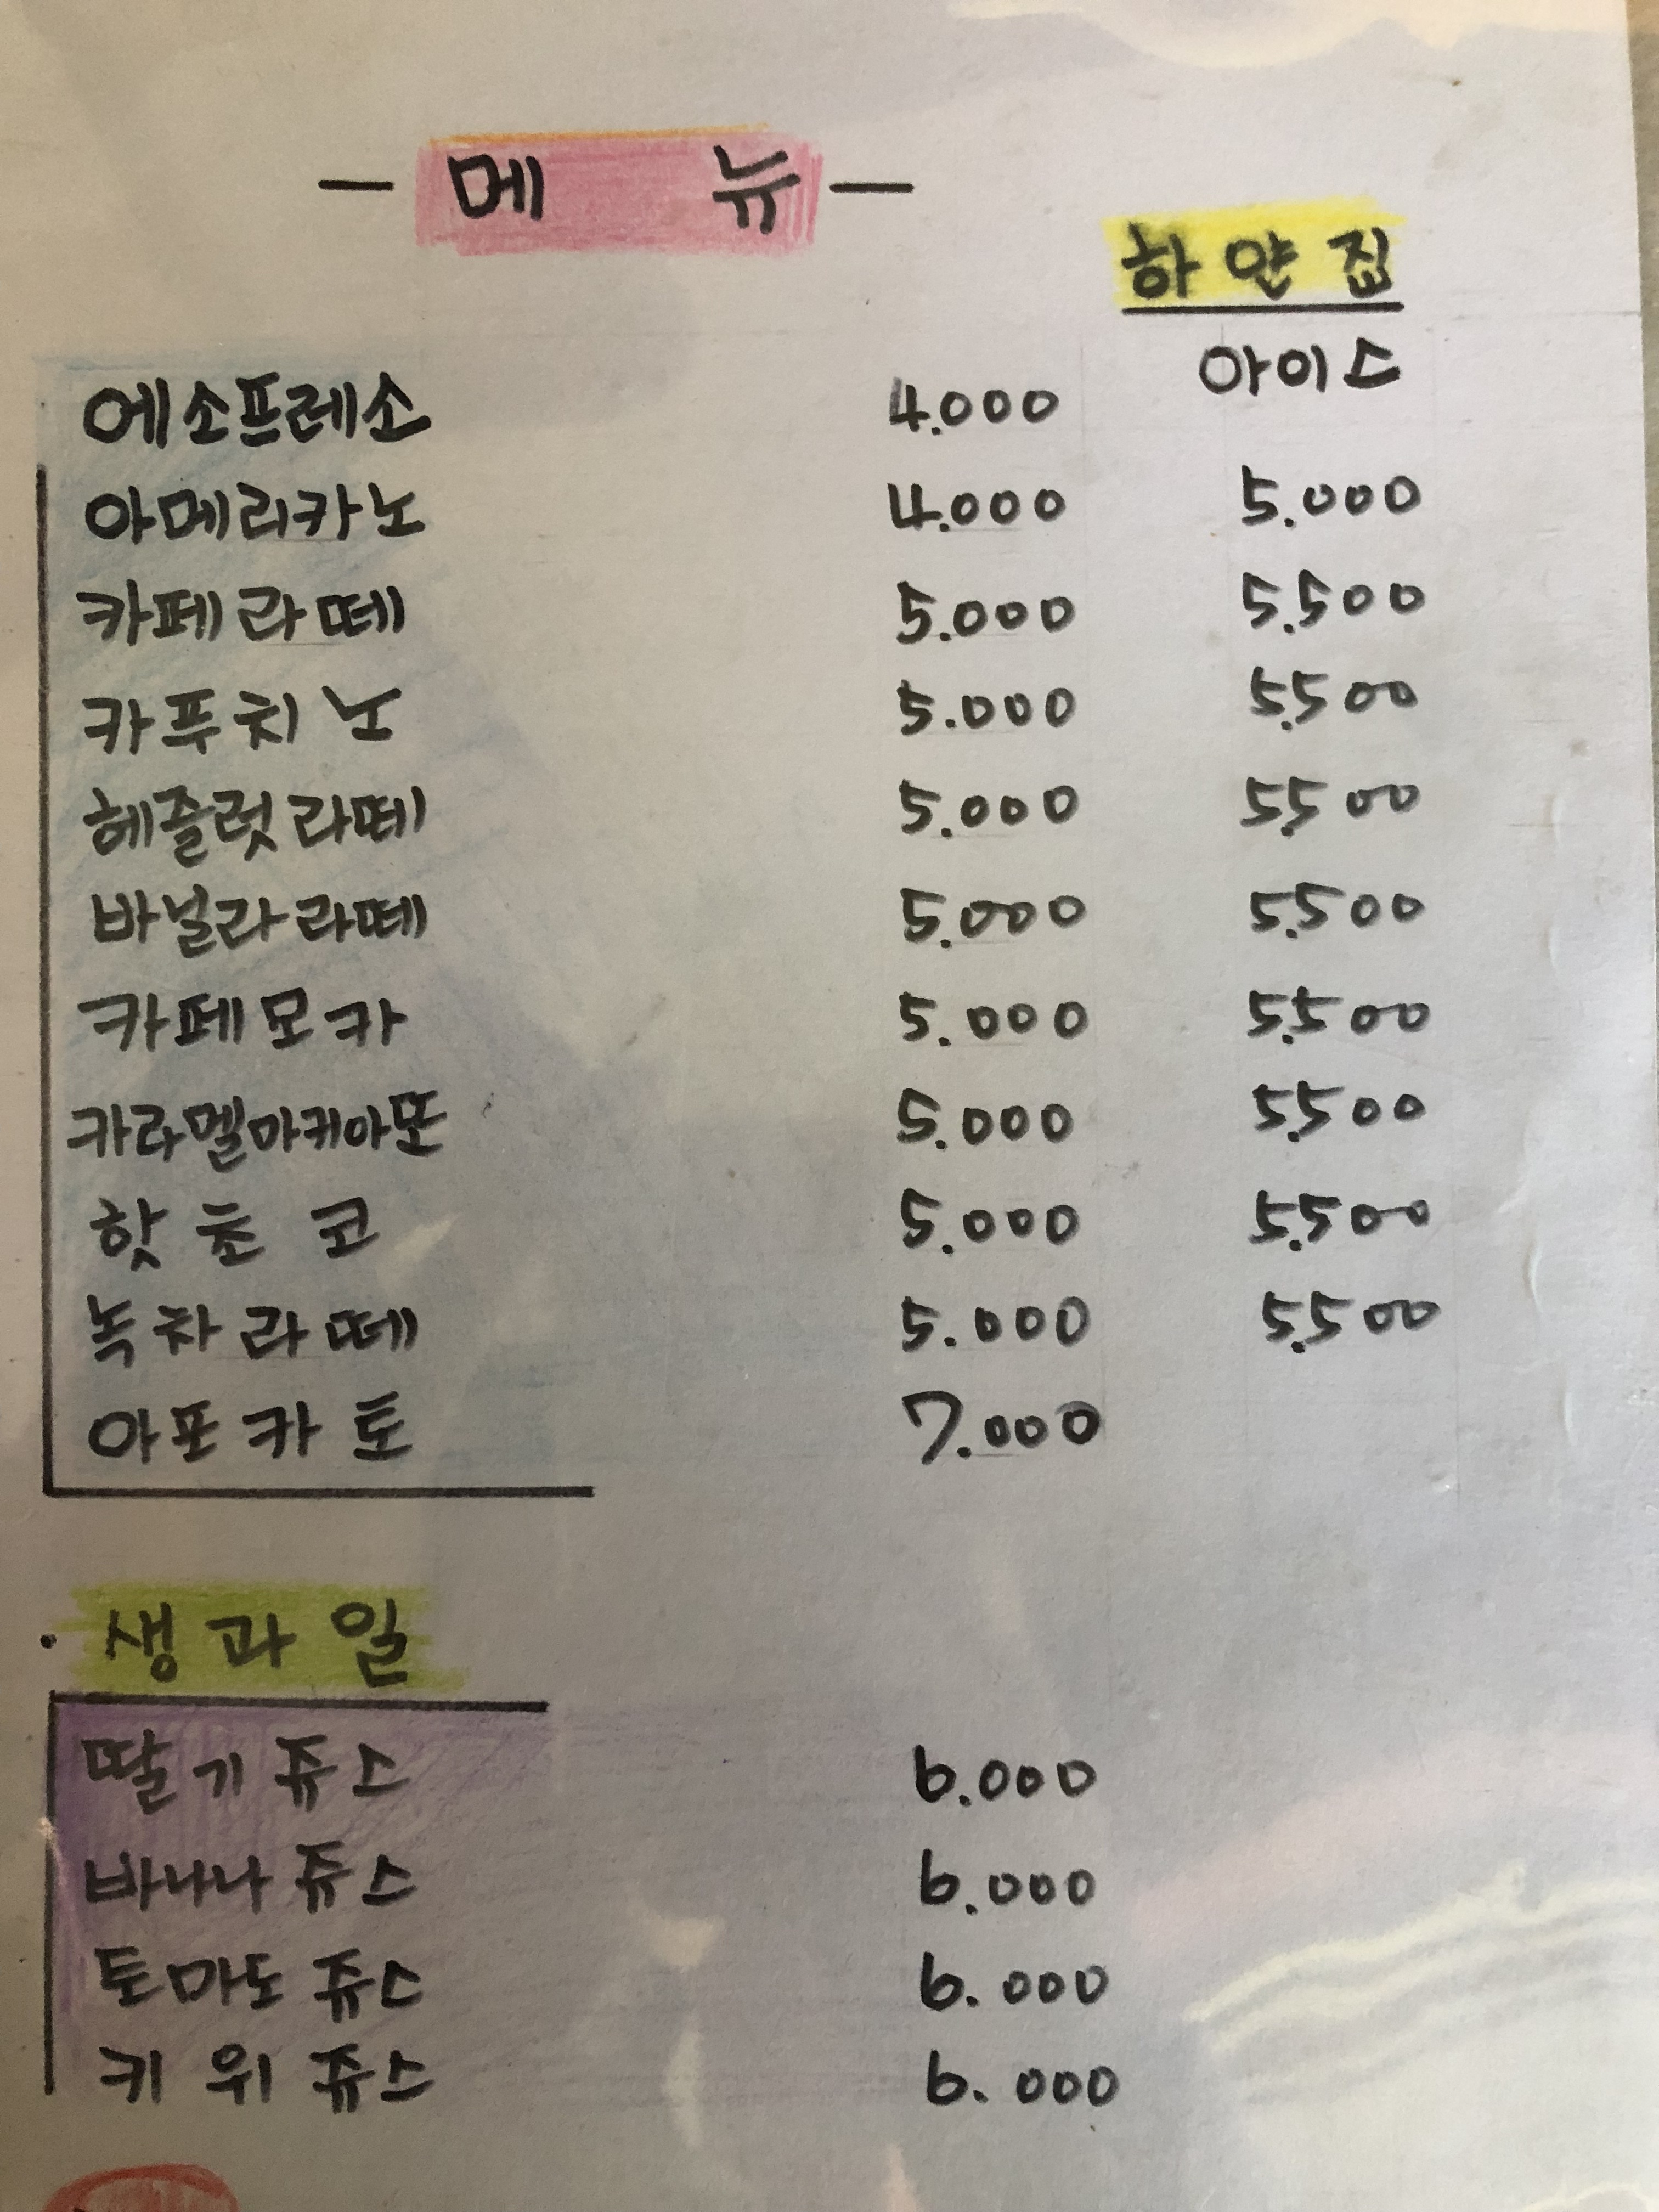 - 메 뉴 -
하얀집
아이스
에소프레소 4.000
아메리카노 4.000 5.000
카페라떼 5.000 5.500
카푸치노 5.000 5.500
헤즐럿라떼 5.000 5.500
바닐라라떼 5.000 5.500
카페모카 5.000 5.500
카라멜마키아또 5.000 5.500
핫초코 5.000 5.500
녹차라떼 5.000 5.500
아포카토 7.000
· 생과일
딸기쥬스 6.000
바나나쥬스 6.000
토마도쥬스 6.000
키위쥬스 6.000